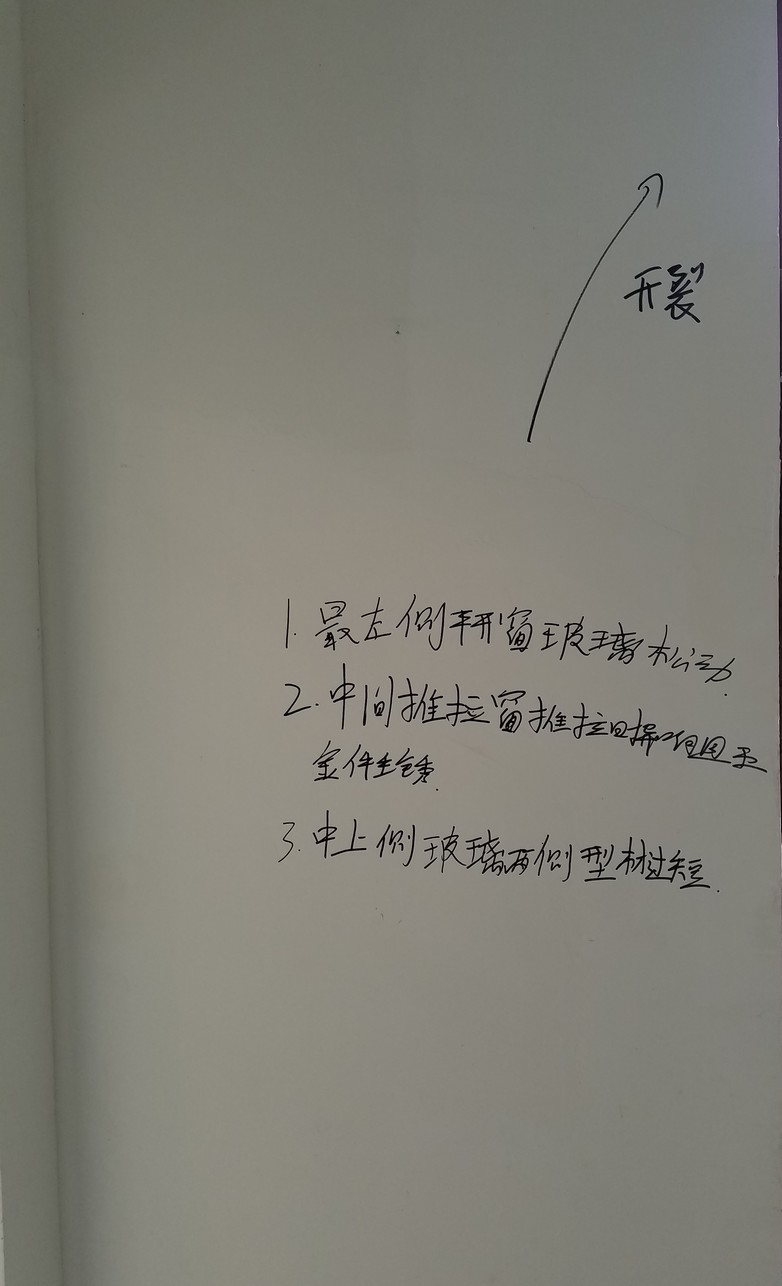 开裂
1. 最左侧平开窗玻璃松动.
2. 中间推拉窗推拉
金件生锈.
3. 中上侧玻璃两侧型材过短.